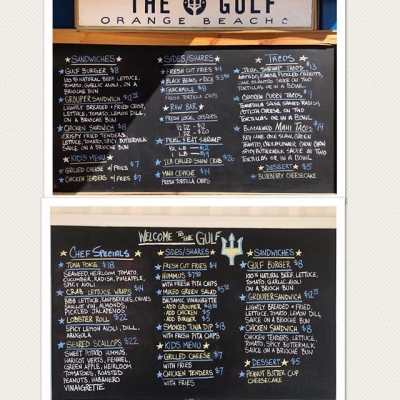 THE GULF
ORANGE BEACH
SANDWICHES
GULF BURGER $8
100% NATURAL BEEF, LETTUCE,
TOMATO, GARLIC AIOLI, ON A
BRIOCHE BUN
GROUPER SANDWICH $12.25
LIGHTLY BREADED + FRIED CRISP,
LETTUCE, TOMATO, LEMON DILL,
ON A BRIOCHE BUN
CHICKEN SANDWICH $8
CRISPY FRIED CHICKEN, LETTUCE,
TOMATO, SPICY BUTTERMILK
SAUCE ON A BRIOCHE BUN
KIDS MENU
GRILLED CHEESE W/ FRIES $7
CHICKEN TENDERS W/ FRIES $7
SIDES/SHARES
FRESH CUT FRIES $4
BLACK BEANS + RICE $3.50
GUACAMOLE $8
FRESH TORTILLA CHIPS
RAW BAR
FRESH LOCAL OYSTERS
1/2 DZ
DZ
PEEL + EAT SHRIMP
1/2 LB
1 LB
1LB CHILLED SNOW CRAB $20
MAHI CEVICHE $14
FRESH TORTILLA CHIPS
TACOS
TORTILLAS OR IN A BOWL
TORTILLAS OR IN A BOWL
BLACKENED MAHI TACOS $14
KEY LIME SOUR SLAW, GREEN
TORTILLAS OR IN A BOWL
DESSERT $5
BLUEBERRY CHEESECAKE
WELCOME TO THE GULF
CHEF SPECIALS
TUNA POKE $18
SEAWEED, HEIRLOOM TOMATO,
CUCUMBER, RADISH, PINEAPPLE,
SPICY AIOLI
CRAB LETTUCE WRAPS $14
BIBB LETTUCE, RASPBERRIES, CHIVES
PICKLED JALAPENOS
LOBSTER ROLL $22
SPICY LEMON AIOLI, DILL,
ARUGULA
SEARED SCALLOPS $22
SWEET POTATO HUMMUS,
HARICOT VERTS, FENNEL,
GREEN APPLE, HEIRLOOM
TOMATOES, ROASTED
PEANUTS, HABANERO
VINAIGRETTE
SIDES/SHARES
FRESH CUT FRIES $4
HUMMUS $7.50
WITH FRESH PITA CHIPS
MIXED GREEN SALAD
BALSAMIC VINAIGRETTE
- ADD GROUPER
- ADD CHICKEN $5
- ADD BURGER $5
SMOKED TUNA DIP $13
WITH FRESH PITA CHIPS
KIDS MENU
GRILLED CHEESE $7
WITH FRIES
CHICKEN TENDERS $7
WITH FRIES
SANDWICHES
GULF BURGER $8
100% NATURAL BEEF, LETTUCE,
TOMATO, GARLIC AIOLI
ON A BRIOCHE BUN
GROUPER SANDWICH $12.25
LIGHTLY BREADED + FRIED,
LETTUCE, TOMATO, LEMON DILL,
SAUCE ON A BRIOCHE BUN
CHICKEN SANDWICH $8
CHICKEN TENDERS, LETTUCE,
TOMATO, SPICY BUTTERMILK
SAUCE ON A BRIOCHE BUN
DESSERT $5
PEANUT BUTTER CUP
CHEESECAKE